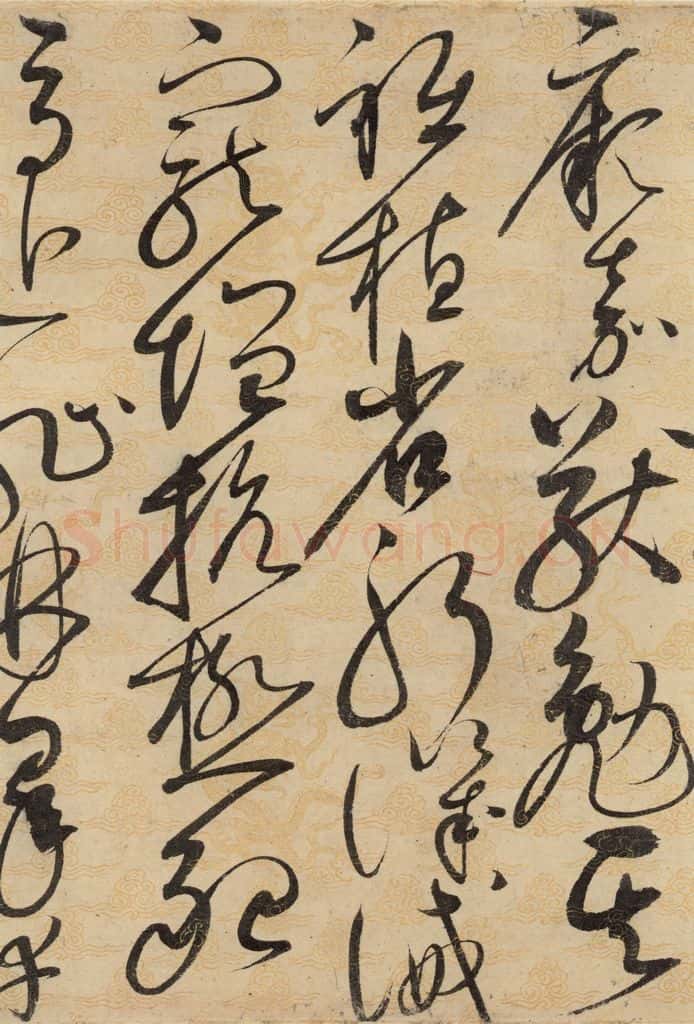 厥嘉猷勉其
祗植省躬譏誡
寵增抗極殆
辱近恥林皋幸
Shufawang.CN